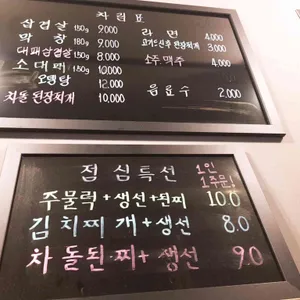 차림표
삼겹살 150g 9.000
막창 180g 9.000
대패삼겹살 150g 8.000
소대패 150g 10.000
오뎅탕 12.000
차돌 된장찌개 10,000
라면 4.000
고기드신후 된장찌개 3,000
소주.맥주 4.000
음료수 2,000
점심특선 1인 1주문!
주물럭+생선+된찌 10.0
김치찌개+생선 8.0
차돌된찌+생선 9.0